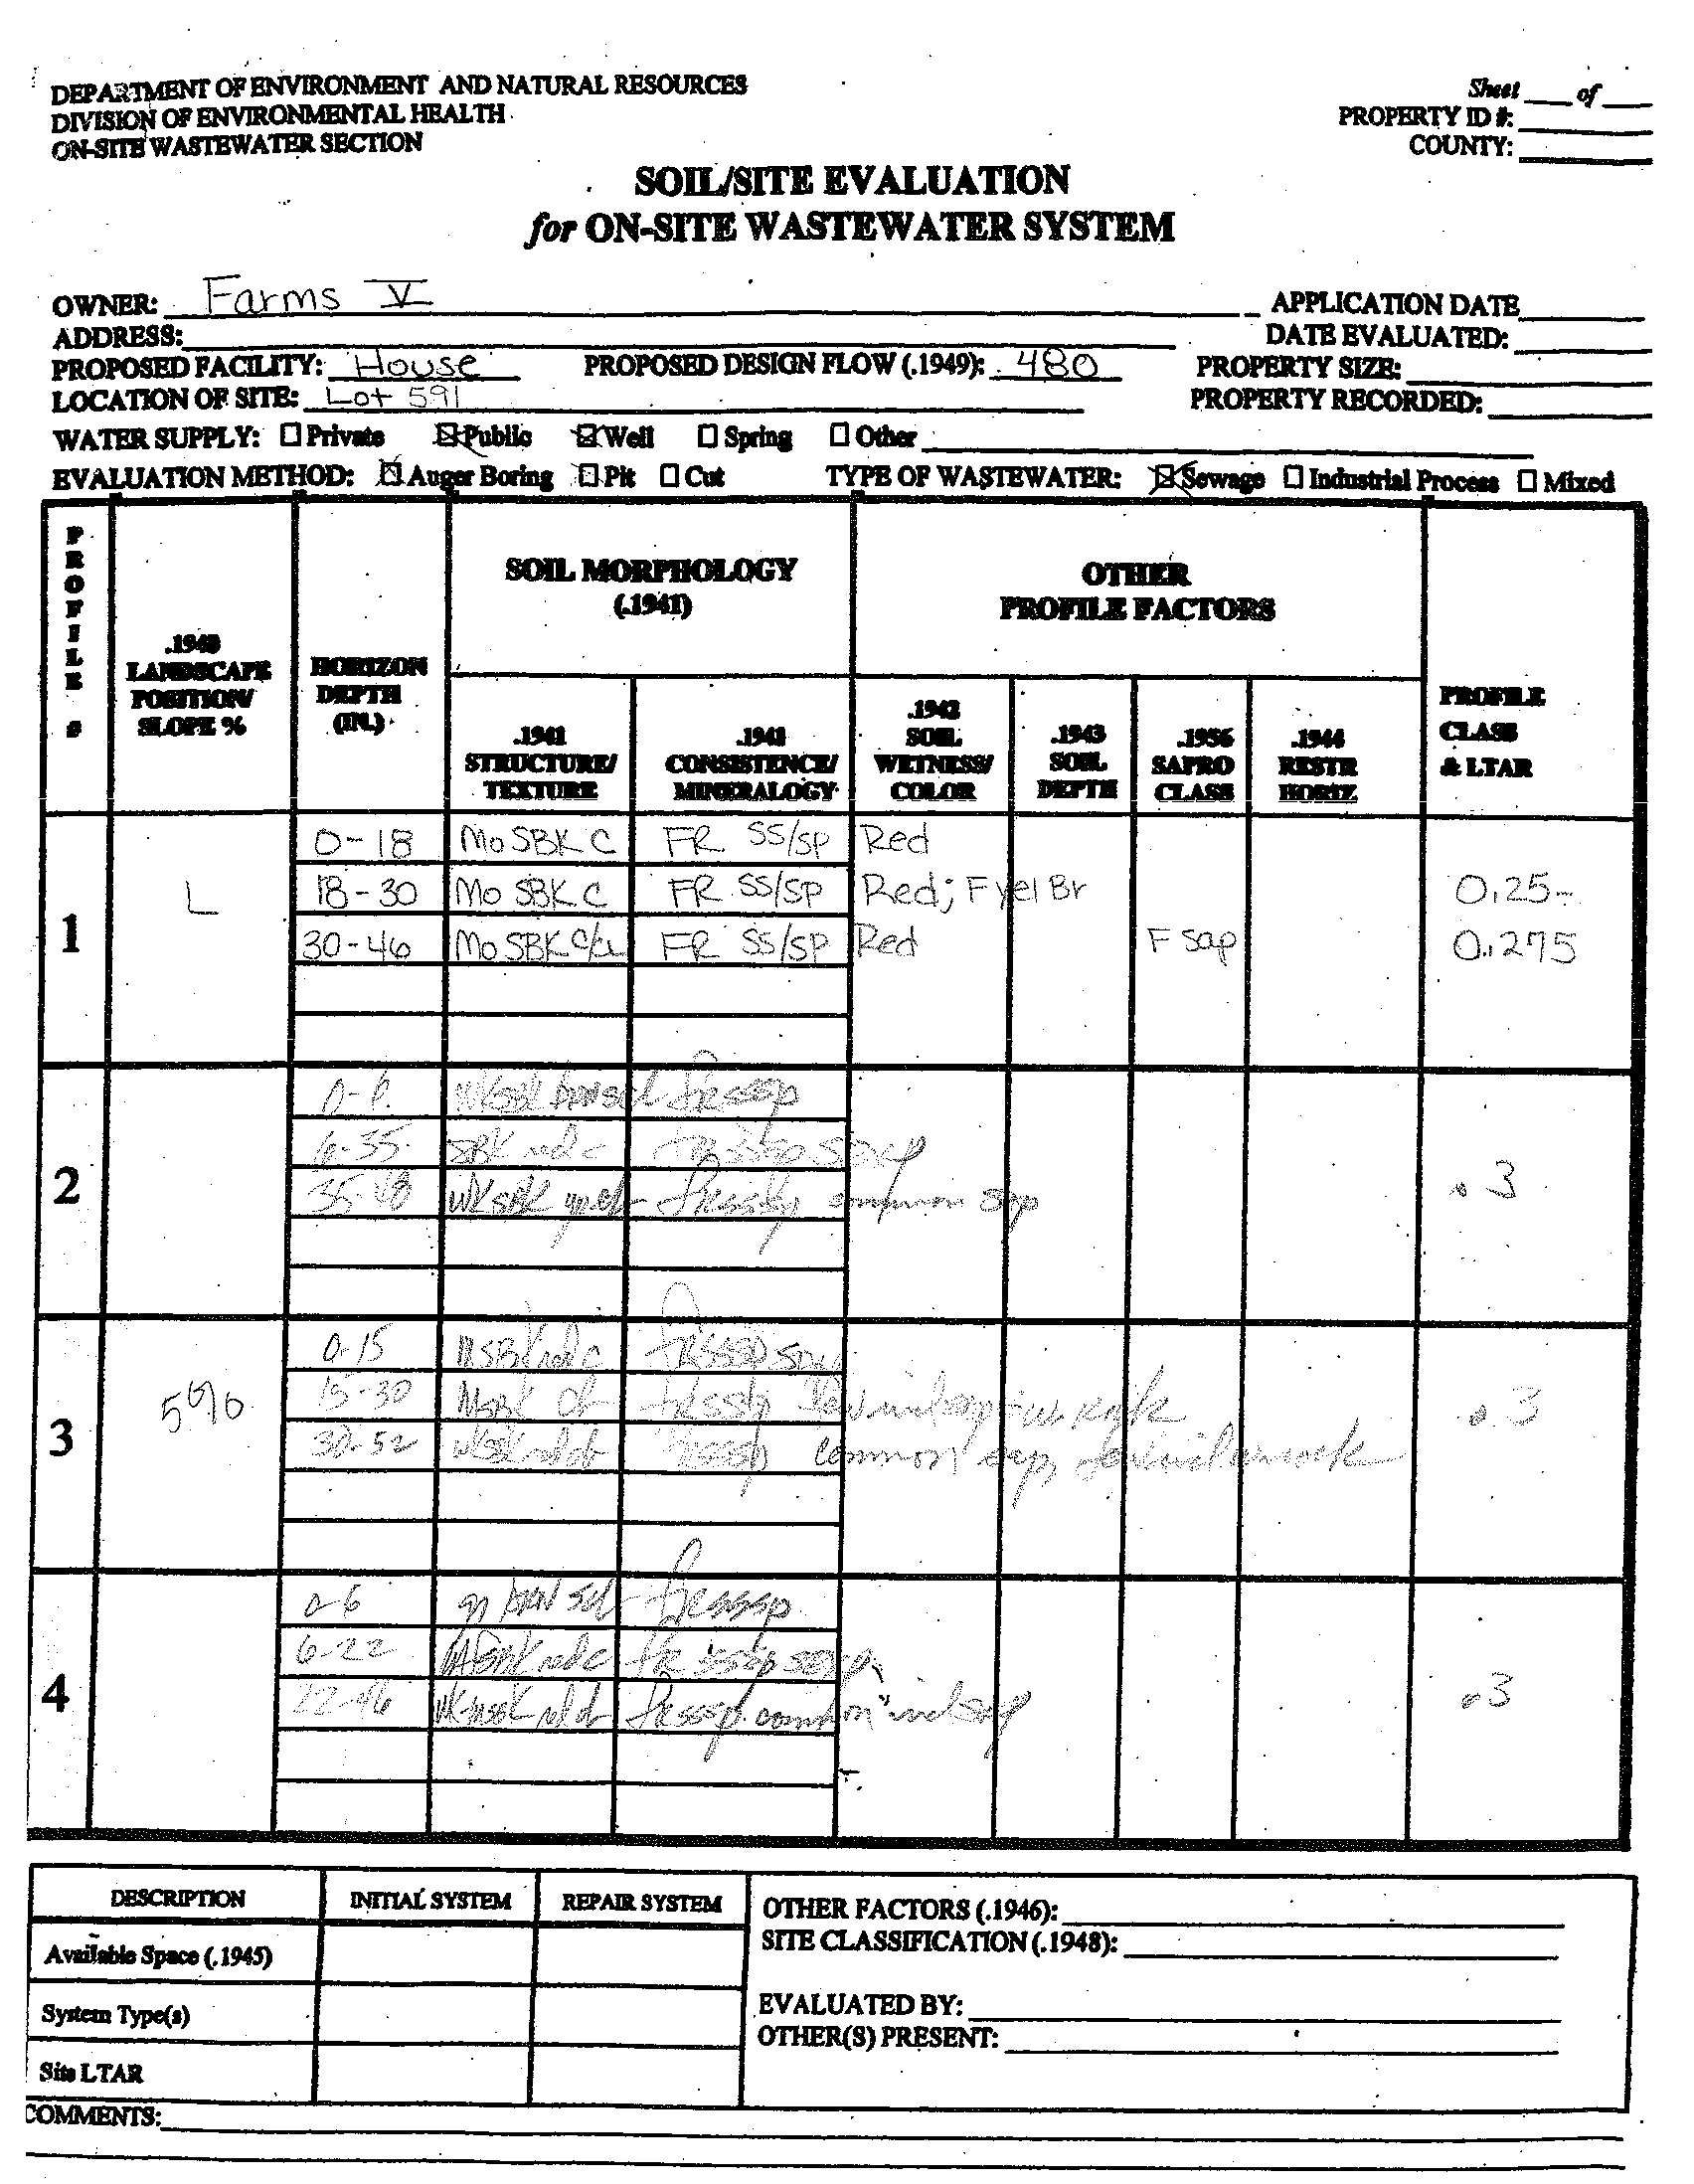 DEPARTMENT OF ENVIRONMENT AND NATURAL RESOURCES
DIVISION OF ENVIRONMENTAL HEALTH
ON-SITE WASTEWATER SECTION
Sheet ___ of ___
PROPERTY ID #:
COUNTY:
SOIL/SITE EVALUATION
for ON-SITE WASTEWATER SYSTEM
OWNER: Farms V
APPLICATION DATE
ADDRESS:
DATE EVALUATED:
PROPOSED FACILITY: House PROPOSED DESIGN FLOW (.1949): 480 PROPERTY SIZE:
LOCATION OF SITE: Lot 591 PROPERTY RECORDED:
WATER SUPPLY: ☐ Private ☒ Public ☒ Well ☐ Spring ☐ Other
EVALUATION METHOD: ☒ Auger Boring ☐ Pit ☐ Cut TYPE OF WASTEWATER: ☒ Sewage ☐ Industrial Process ☐ Mixed
PROFILE #
.1940 LANDSCAPE POSITION/ SLOPE %
HORIZON DEPTH (IN.)
SOIL MORPHOLOGY (.1941)
.1941 STRUCTURE/ TEXTURE
.1941 CONSISTENCE/ MINERALOGY
OTHER PROFILE FACTORS
.1942 SOIL WETNESS/ COLOR
.1943 SOIL DEPTH
.1956 SAPRO CLASS
.1944 RESTR HORIZ
PROFILE CLASS & LTAR
1 L
0-18 Mo SBK C FR SS/SP Red
18-30 Mo SBK C FR SS/SP Red; F Yel Br 0.25-
30-46 Mo SBK C/CL FR SS/SP Red F Sap 0.275
2
0-6 WKSBK brn scl fr sssp
6-35 SBK red c fr sssp sexp
35-48 WKSBK fr sssp common sap .3
3 5%
0-15 MSBK red c fr sssp
15-30 MSBK cl fr sssp few rock .3
30-52 WKSBK red cl fr sssp common sap, rock
4
0-6 gr brn scl fr sssp
6-22 MSBK red c fr sssp sexp
22-46 WK-MSBK red cl fr sssp common sap .3
DESCRIPTION INITIAL SYSTEM REPAIR SYSTEM
Available Space (.1945)
System Type(s)
Site LTAR
OTHER FACTORS (.1946):
SITE CLASSIFICATION (.1948):
EVALUATED BY:
OTHER(S) PRESENT:
COMMENTS: